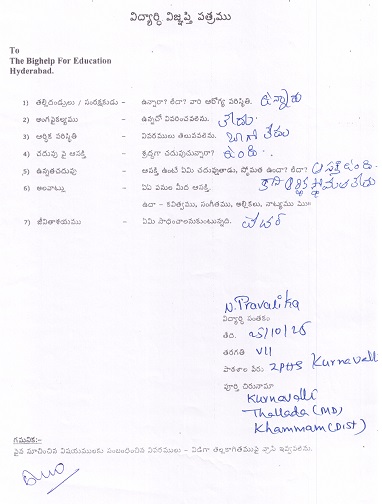 విద్యార్ధి విజ్ఞప్తి పత్రము
To
The Bighelp For Education
Hyderabad.
1) తల్లిదండ్రులు / సంరక్షకుడు - ఉన్నారా? లేదా? వారి ఆరోగ్య పరిస్థితి. ఉన్నారు
2) అంగవైకల్యము - ఉన్నచో వివరించవలెను. లేదు.
3) ఆర్ధిక పరిస్థితి - వివరములు తెలుపవలెను. బాగా లేదు
4) చదువు పై ఆసక్తి - శ్రద్ధగా చదువుచున్నారా? ఉంది.
5) ఉన్నతచదువు - ఆసక్తి ఉంటే ఏమి చదువుతాడు, స్తోమత ఉందా? లేదా? ఆసక్తి ఉంది.
కాని ఆర్ధిక స్తోమత లేదు
6) అలవాట్లు - ఏఏ పనుల మీద ఆసక్తి.
ఉదా - కవిత్వము, సంగీతము, అల్లికలు, నాట్యము మొ॥
7) జీవితాశయము - ఏమి సాధించాలనుకుంటున్నది. టీచర్
N. Pravalika
విద్యార్ధి సంతకం
తేది. 25/10/25
తరగతి VII
పాఠశాల పేరు ZPHS Kurnavalli
పూర్తి చిరునామా
Kurnavalli
Thallada (MD)
Khammam (Dist)
గమనిక:-
పైన సూచించిన విషయములకు సంబంధించిన వివరములు - విడిగా తెల్లకాగితముపై వ్రాసి ఇవ్వవలెను.